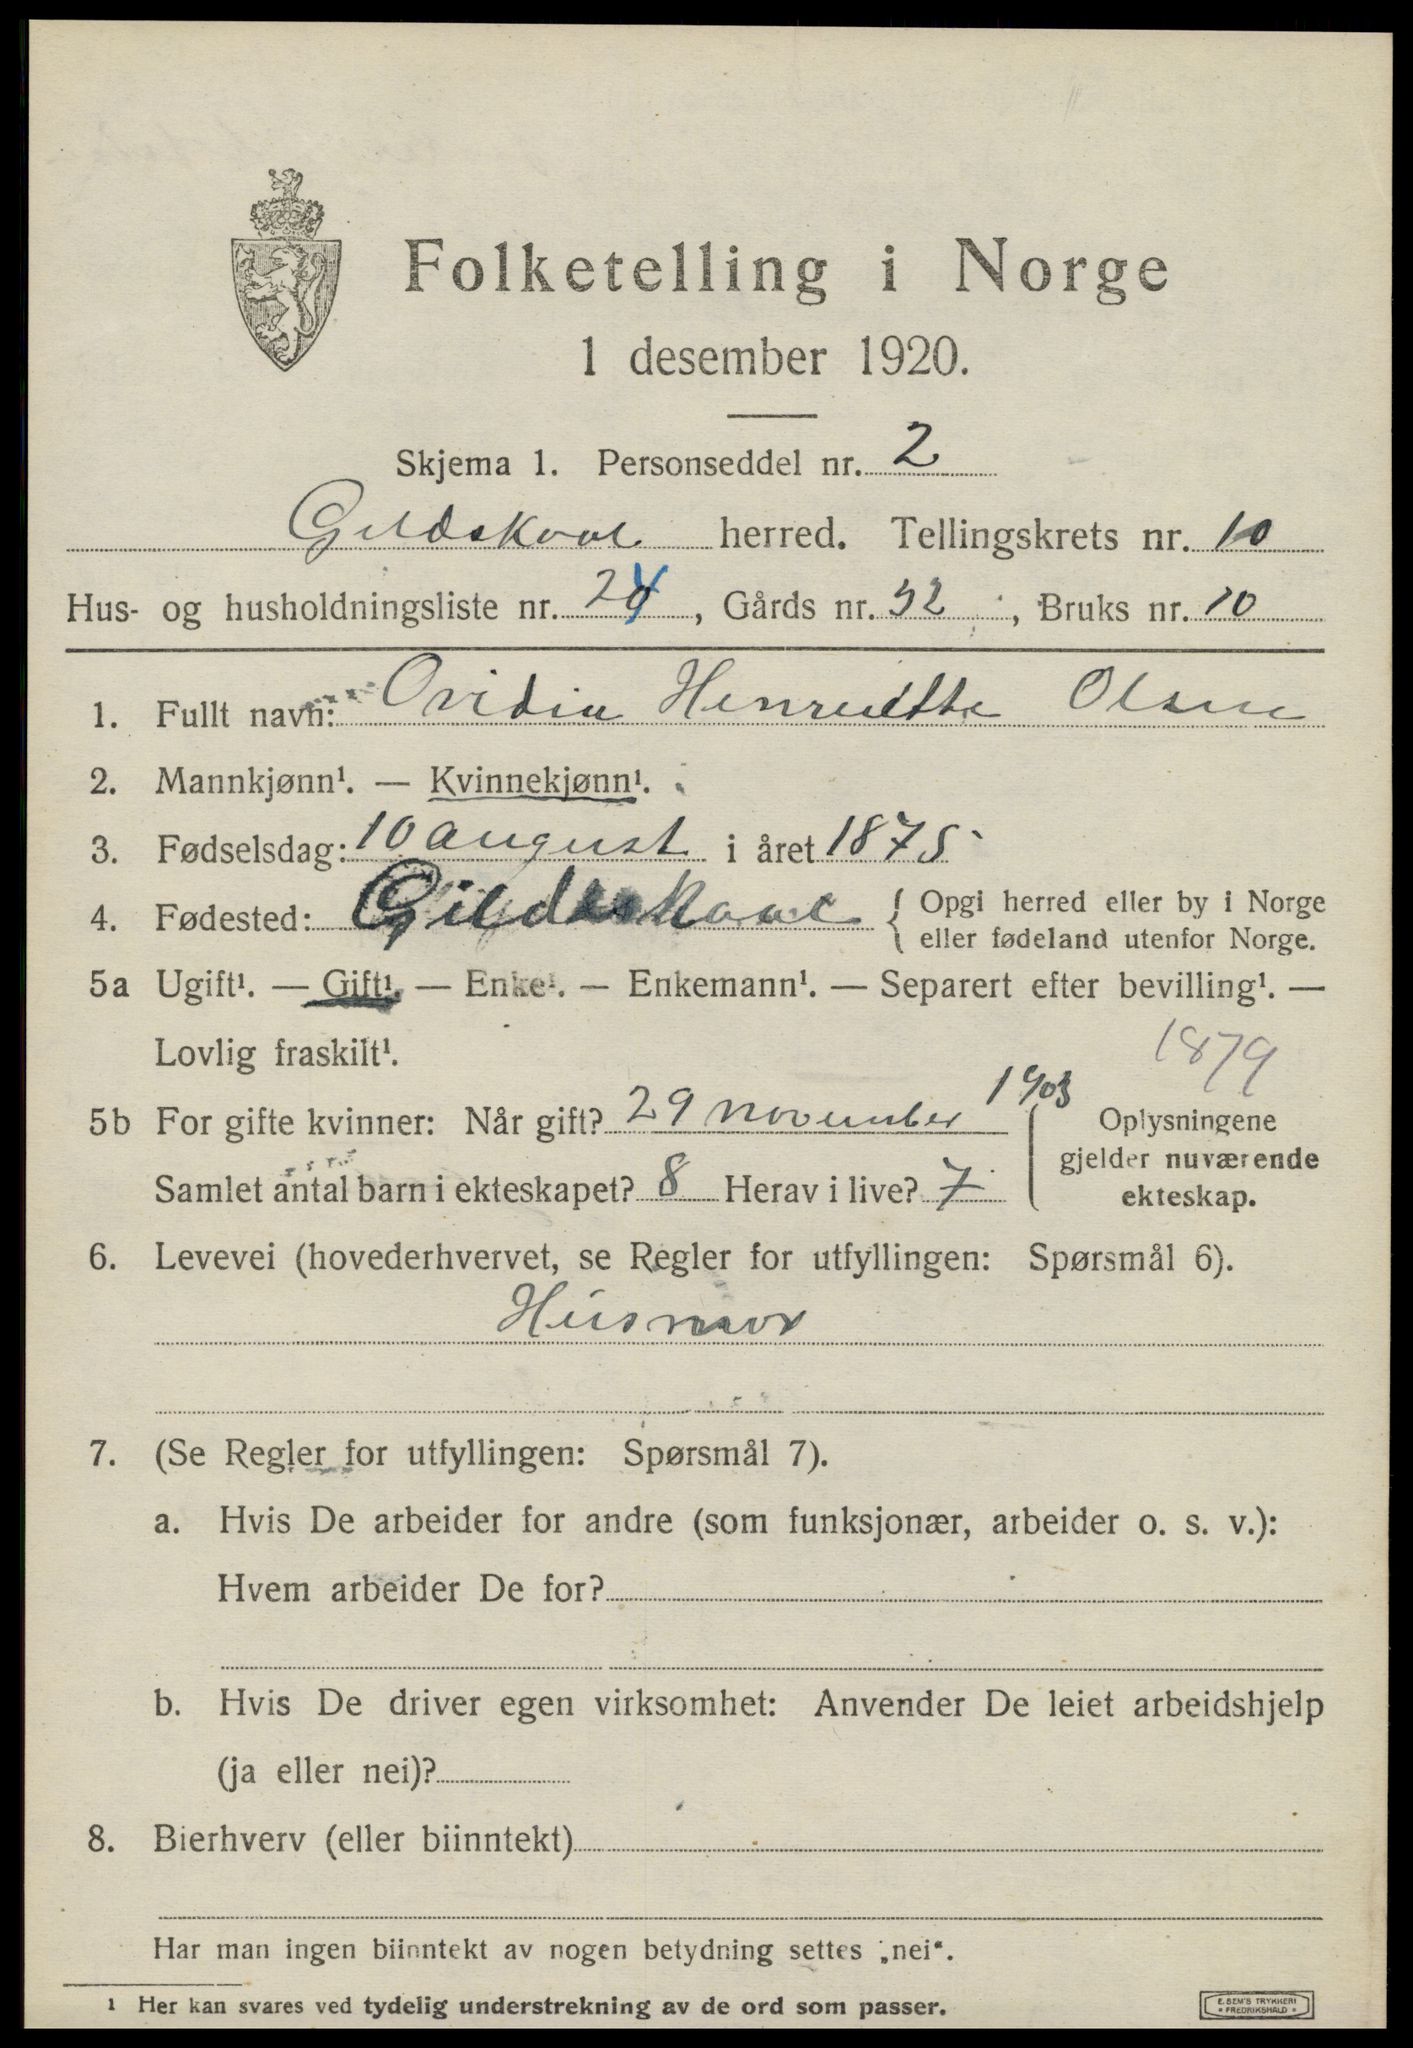 Folketelling i Norge
1 desember 1920.
Skjema 1. Personseddel nr. 2
Gildskaal herred. Tellingskrets nr. 10
Hus- og husholdningsliste nr. 24, Gårds nr. 32, Bruks nr. 10
1. Fullt navn: Ovidia Henriette Olsen
2. Mannkjønn¹. — Kvinnekjønn¹.
3. Fødselsdag: 10 august i året 1875
4. Fødested: Gildeskaal { Opgi herred eller by i Norge
eller fødeland utenfor Norge.
5a Ugift¹. — Gift¹. — Enke¹. — Enkemann¹. — Separert efter bevilling¹. —
Lovlig fraskilt¹.
1879
5b For gifte kvinner: Når gift? 29 november 1903
Samlet antal barn i ekteskapet? 8 Herav i live? 7
Oplysningene
gjelder nuværende
ekteskap.
6. Levevei (hovederhvervet, se Regler for utfyllingen: Spørsmål 6).
Husmor
7. (Se Regler for utfyllingen: Spørsmål 7).
a. Hvis De arbeider for andre (som funksjonær, arbeider o. s. v.):
Hvem arbeider De for?
b. Hvis De driver egen virksomhet: Anvender De leiet arbeidshjelp
(ja eller nei)?
8. Bierhverv (eller biinntekt)
Har man ingen biinntekt av nogen betydning settes „nei“.
¹ Her kan svares ved tydelig understrekning av de ord som passer.
E. SEM'S TRYKKERI
• FREDRIKSHALD •